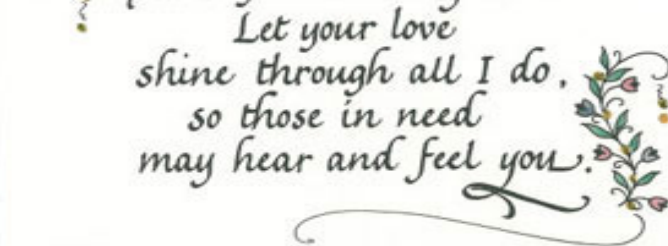 Let your love
shine through all I do,
so those in need
may hear and feel you.